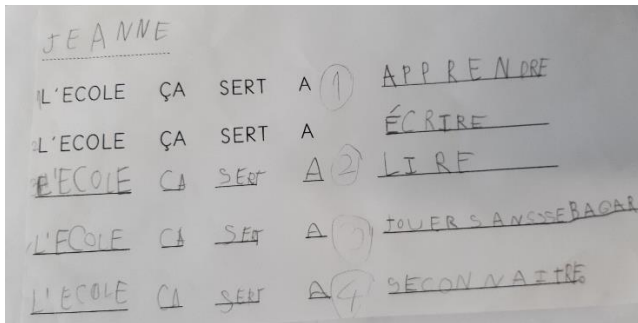 JEANNE
L'ECOLE ÇA SERT A 1 APPRENDRE
L'ECOLE ÇA SERT A ÉCRIRE
L'ECOLE CA SERT A 2 LIRE
L'ECOLE CA SERT A 3 JOUER SANS SEBAGAR
L'ECOLE CA SERT A 4 SECONNAITRE